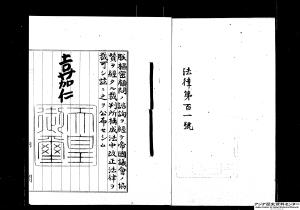 法律第百一號
朕樞密顧問ノ諮詢ヲ經テ帝國議會ノ協
贊ヲ經タル裁判所構成法中改正法律ヲ
裁可シ茲ニ之ヲ公布セシム
嘉仁
天皇
御璽
アジア歴史資料センター